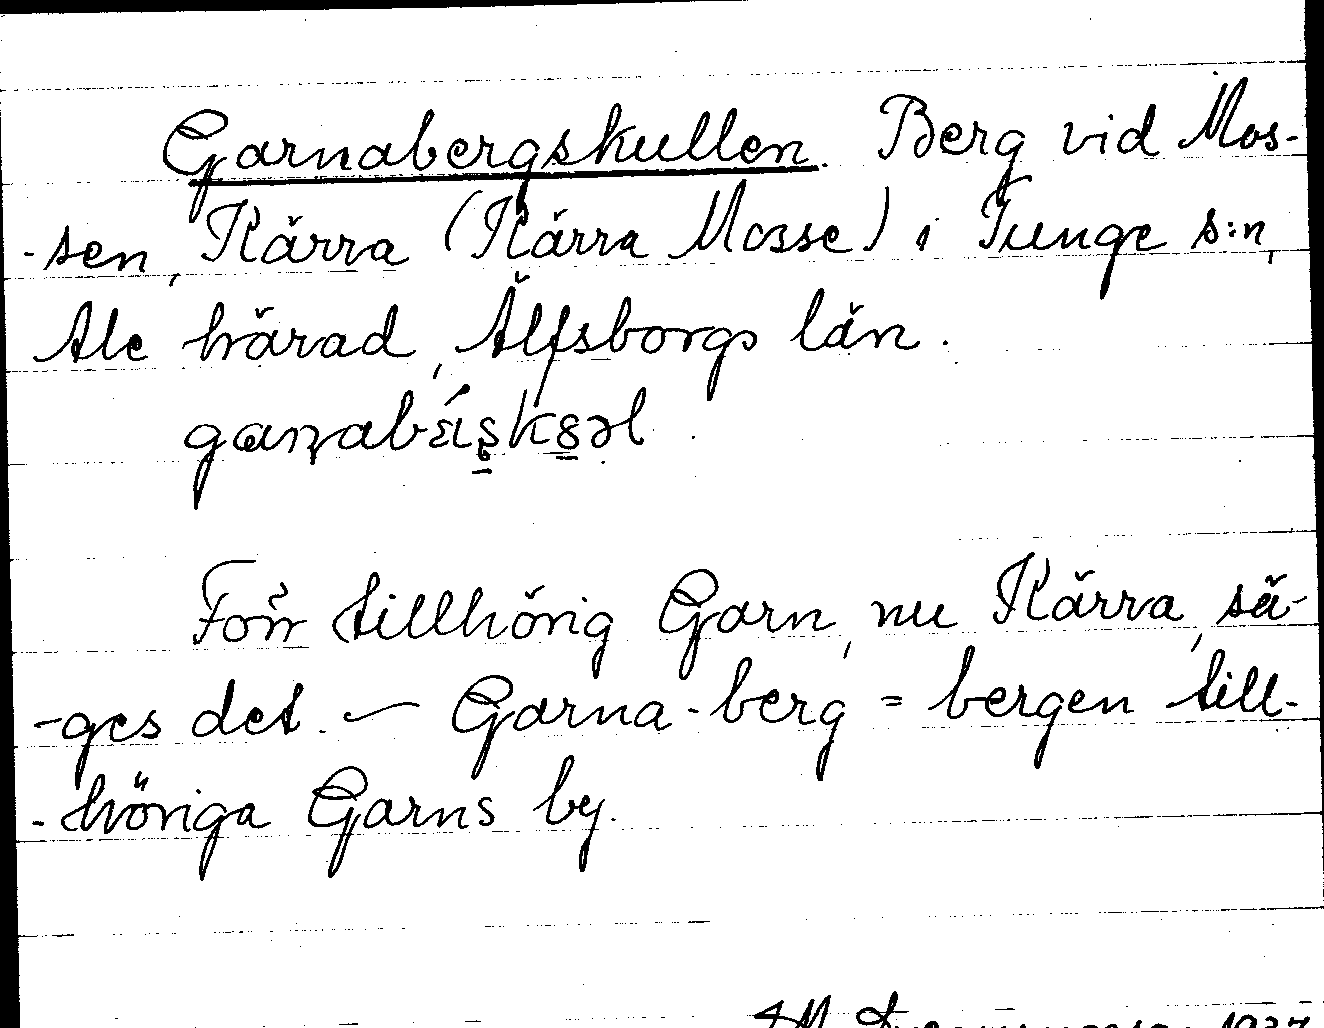 Garnabergskullen. Berg vid Mos-
-sen, Kärra (Kärra Mosse) i Tunge s:n,
Ale härad, Älfsborgs län.
Förr tillhörig Garn, nu Kärra, sä-
-ges det. — Garna-berg = bergen till-
-höriga Garns by.
1937